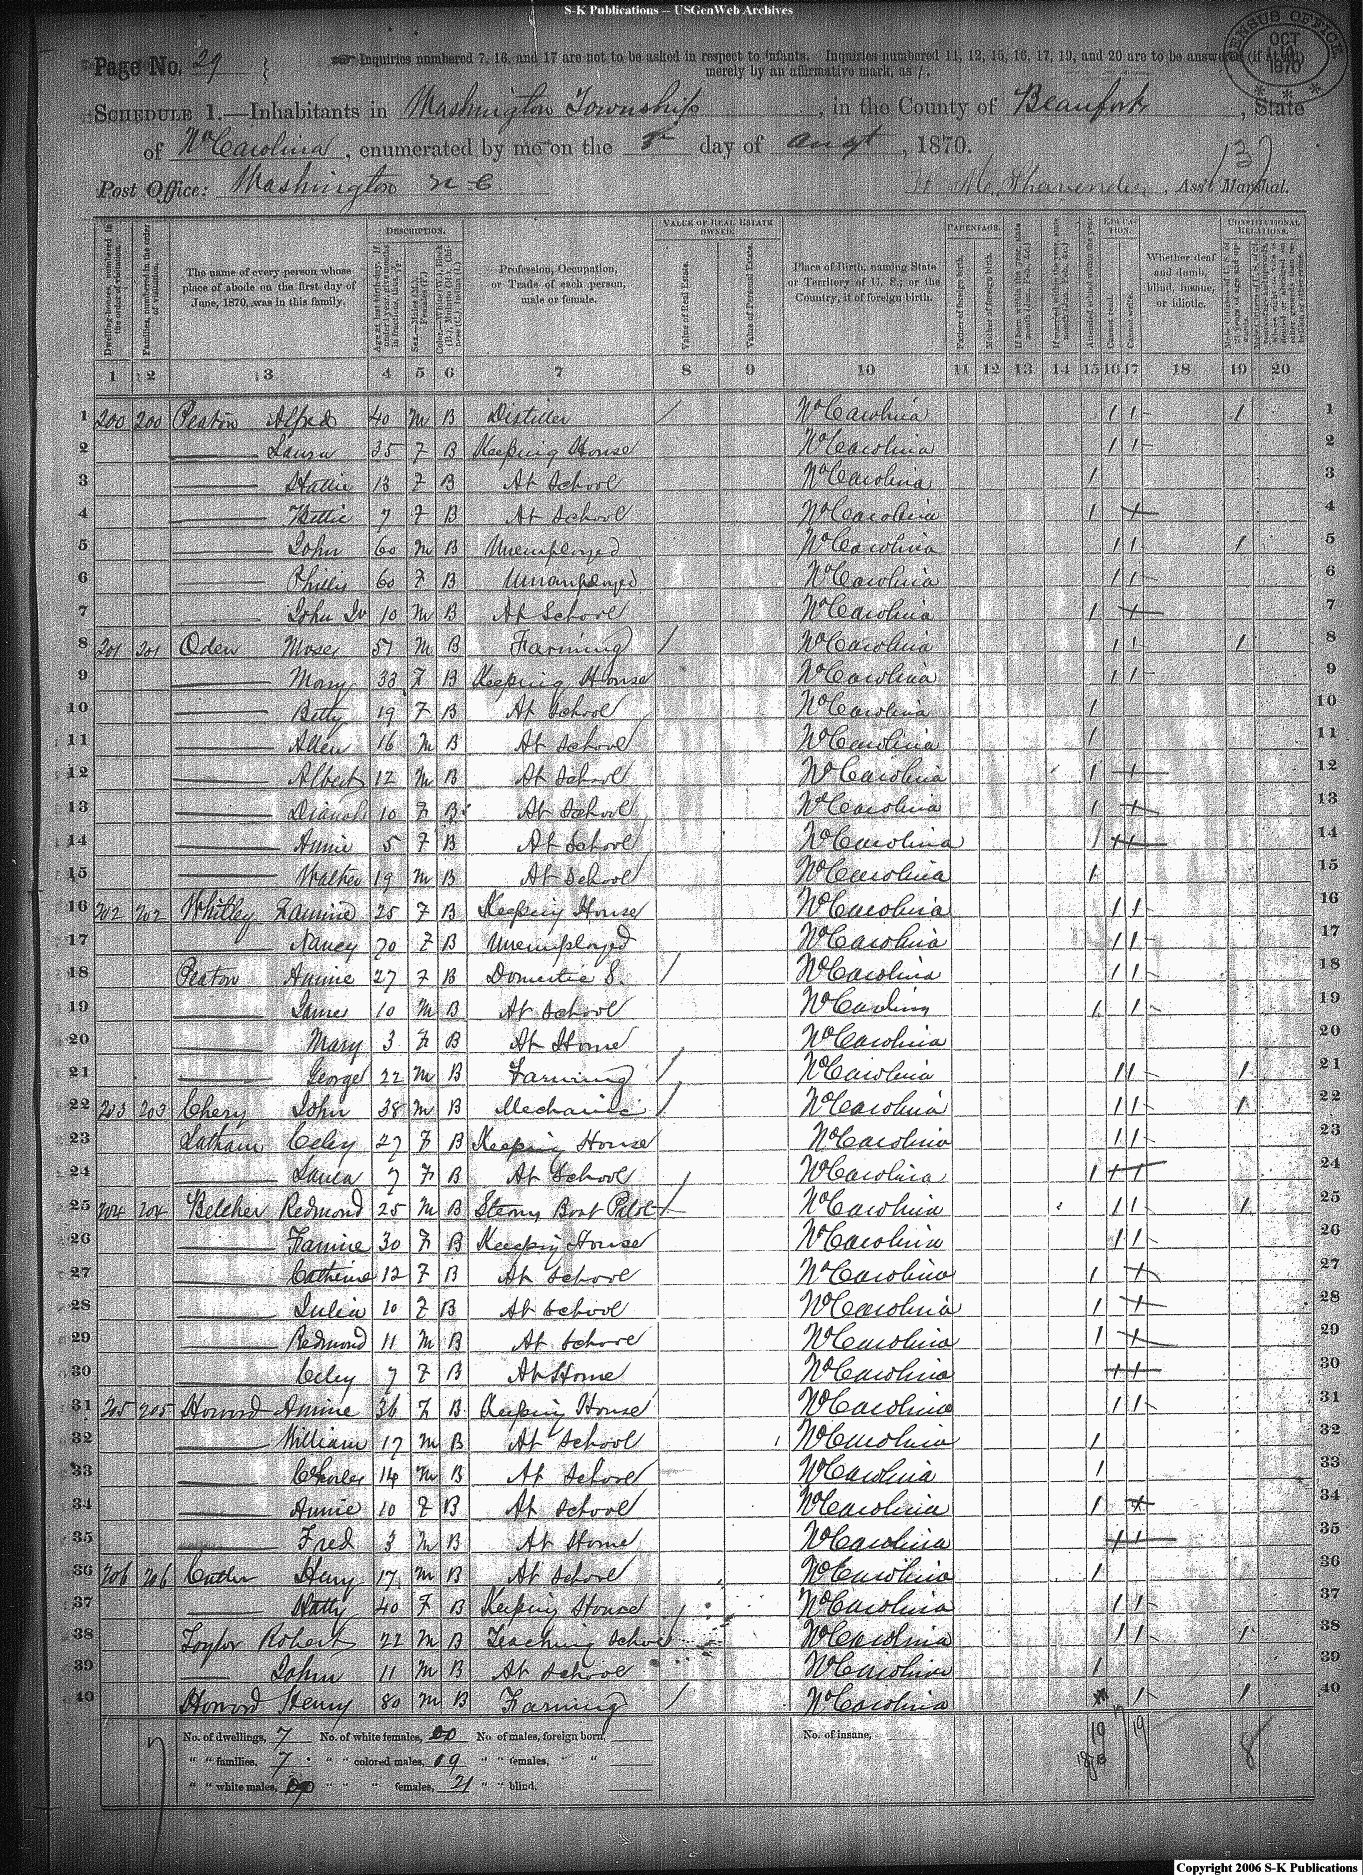 S-K Publications -- USGenWeb Archives
CENSUS OFFICE OCT 10 1870
Page No. 29
Inquiries numbered 7, 16, and 17 are not to be asked in respect to infants. Inquiries numbered 11, 12, 15, 16, 17, 19, and 20 are to be answered (if at all)
merely by an affirmative mark, as /.
SCHEDULE 1.—Inhabitants in Washington Township, in the County of Beaufort, State
of No Carolina, enumerated by me on the 8 day of Augt, 1870.
Post Office: Washington N C Ass't Marshal.
DESCRIPTION. VALUE OF REAL ESTATE OWNED. PARENTAGE. EDUCATION. CONSTITUTIONAL RELATIONS.
Dwelling-houses, numbered in the order of visitation. Families, numbered in the order of visitation. The name of every person whose place of abode on the first day of June, 1870, was in this family. Profession, Occupation, or Trade of each person, male or female. Value of Real Estate. Value of Personal Estate. Place of Birth, naming State or Territory of U. S.; or the Country, if of foreign birth. Father of foreign birth. Mother of foreign birth. Cannot read. Cannot write. Whether deaf and dumb, blind, insane, or idiotic.
1 2 3 4 5 6 7 8 9 10 11 12 13 14 15 16 17 18 19 20
1 200 200 Peaton Alfred 40 M B Distiller / No Carolina / / / 1
2 —— Laura 35 F B Keeping House No Carolina / / 2
3 —— Hattie 13 F B At School No Carolina / 3
4 —— Bettie 7 F B At School No Carolina / 4
5 —— John 60 M B Unemployed No Carolina / / / 5
6 —— Phillis 60 F B Unemployed No Carolina / / 6
7 —— John Jr 10 M B At School No Carolina / 7
8 201 201 Oden Moses 57 M B Farming / No Carolina / / / 8
9 —— Mary 33 F B Keeping House No Carolina / / 9
10 —— Betty 19 F B At School No Carolina / 10
11 —— Allen 16 M B At School No Carolina / 11
12 —— Albert 12 M B At School No Carolina / 12
13 —— Dianah 10 F B At School No Carolina / 13
14 —— Annie 5 F B At School No Carolina / 14
15 —— Walter 19 M B At School No Carolina / 15
16 202 202 Whitley Fannie 25 F B Keeping House No Carolina / / 16
17 —— Nancy 70 F B Unemployed No Carolina / / 17
18 Peaton Annie 27 F B Domestic S. / No Carolina / / 18
19 —— James 10 M B At School No Carolina / / / 19
20 —— Mary 3 F B At Home No Carolina 20
21 —— George 22 M B Farming / No Carolina / / / 21
22 203 203 Chery John 38 M B Mechanic / No Carolina / / / 22
23 Latham Celey 27 F B Keeping House No Carolina / / 23
24 —— Laura 7 F B At School No Carolina / 24
25 204 204 Belcher Redmond 25 M B Steam Boat Pilot / No Carolina / / / 25
26 —— Fannie 30 F B Keeping House No Carolina / / 26
27 —— Catherine 12 F B At School No Carolina / 27
28 —— Julia 10 F B At School No Carolina / 28
29 —— Redmond 11 M B At School No Carolina / 29
30 —— Celey 7 F B At Home No Carolina 30
31 205 205 Howord Annie 36 F B Keeping House No Carolina / / 31
32 —— William 17 M B At School No Carolina / 32
33 —— Charles 14 M B At School No Carolina / 33
34 —— Annie 10 F B At School No Carolina / 34
35 —— Fred 3 M B At Home No Carolina 35
36 206 206 Cutler Henry 17 M B At School No Carolina / 36
37 —— Hatty 40 F B Keeping House No Carolina / / 37
38 Toylor Robert 22 M B Teaching School No Carolina / / / 38
39 —— John 11 M B At School No Carolina / 39
40 Howord Henry 80 M B Farming / No Carolina / / 40
No. of dwellings, 7 No. of white females, 00 No. of males, foreign born, No. of insane, 19 19 8
" " families, 7 " " colored males, 19 " " females, " "
" " white males, " " " females, 21 " " blind,
Copyright 2006 S-K Publications